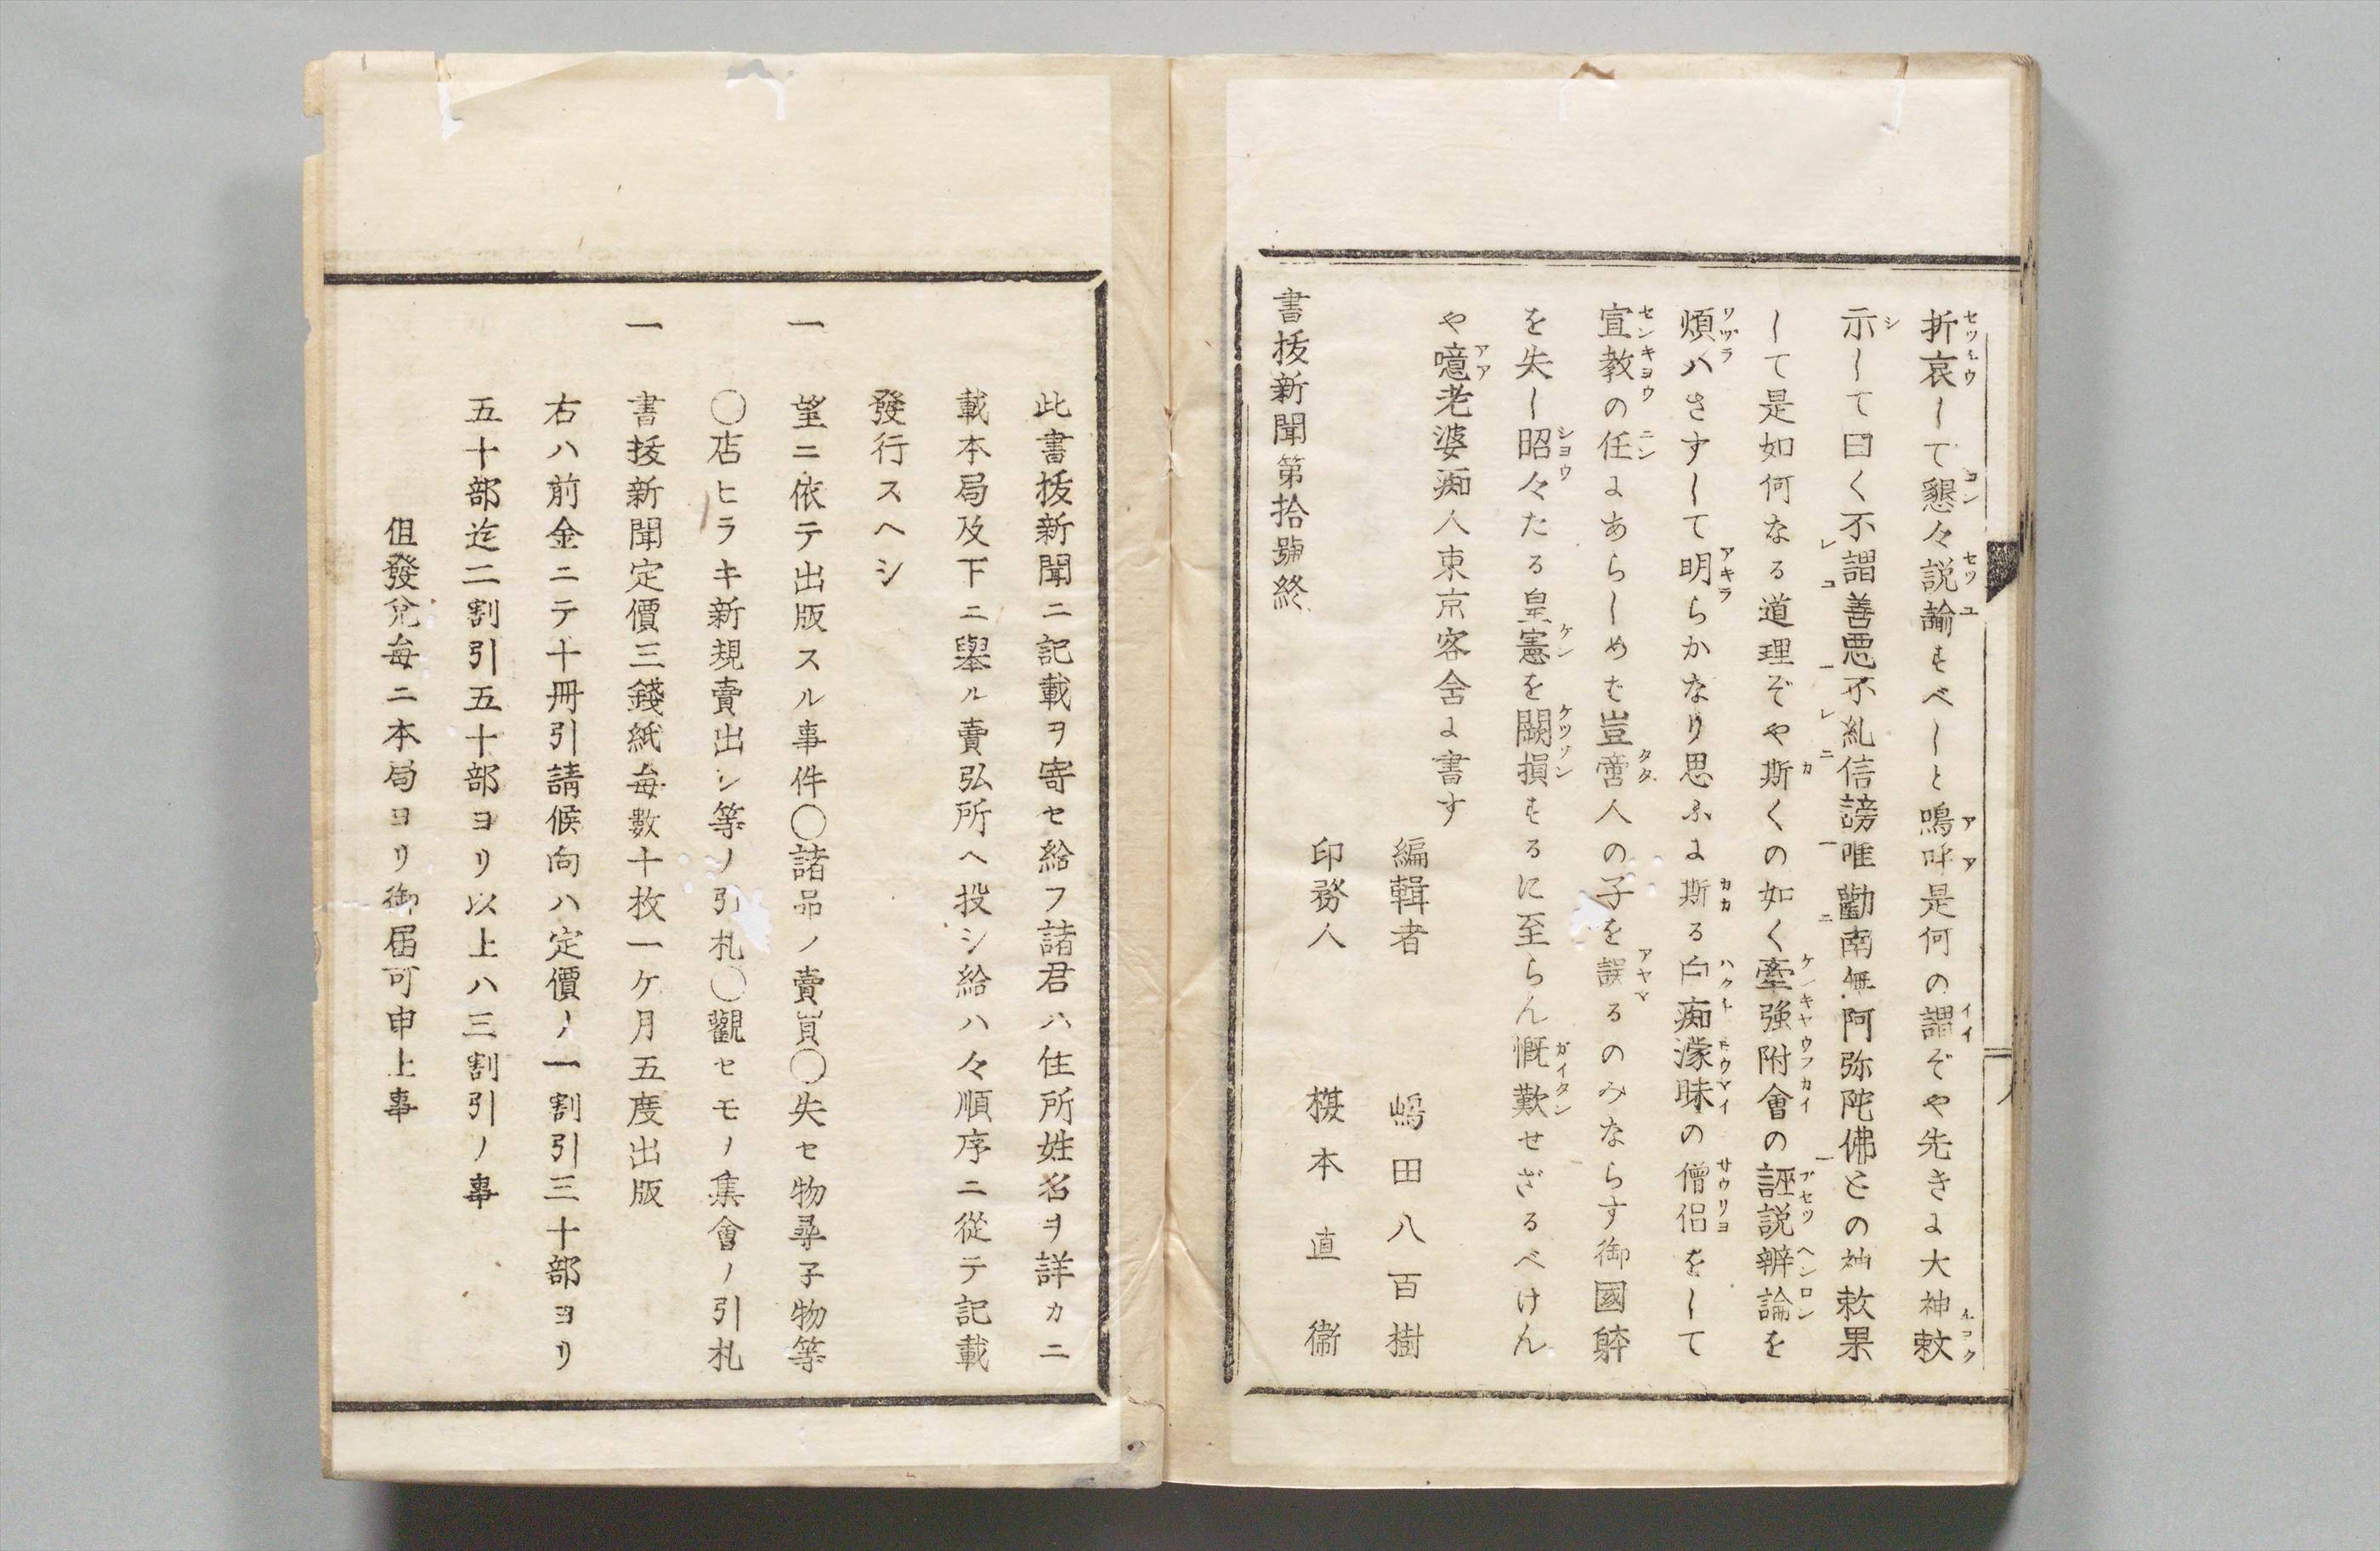 折哀して懇々説諭すべしと鳴呼是何の謂ぞや先きに大神敕
示して曰く不謂善悪不糺信謗唯勸南無阿弥陀佛との神敕果
して是如何なる道理ぞや斯くの如く牽強附會の誣説辨論を
煩ハさすして明らかなり思ふに斯る白痴濛昧の僧侶をして
宣教の任にあらしめむ豈啻人の子を誤るのみならす御國躰
を失し昭々たる皇憲を闕損するに至らん慨歎せざるべけん
や噫老婆痴人東京客舍に書す
編輯者 嶋田八百樹
印務人 榠本直衞
書抜新聞第拾號終
此書抜新聞ニ記載ヲ寄セ給フ諸君ハ住所姓名ヲ詳カニ
載本局及下ニ舉ル賣弘所ヘ投シ給ハ々順序ニ從テ記載
發行スヘシ
一 望ニ依テ出版スル事件〇諸品ノ賣買〇失セ物尋子物等
〇店ヒラキ新規賣出シ等ノ引札〇觀セモノ集會ノ引札
一 書抜新聞定價三錢紙毎數十枚一ケ月五度出版
右ハ前金ニテ十冊引請候向ハ定價ノ一割引三十部ヨリ
五十部迄二割引五十部ヨリ以上ハ三割引ノ事
伹發兌毎ニ本局ヨリ御届可申上事